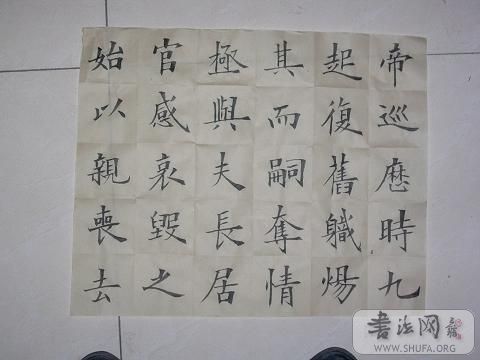 始以親喪去
官感哀毀之
極與夫長居
其而嗣奪情
起復舊軄煬
帝巡歷時九
書法网
WWW.SHUFA.ORG